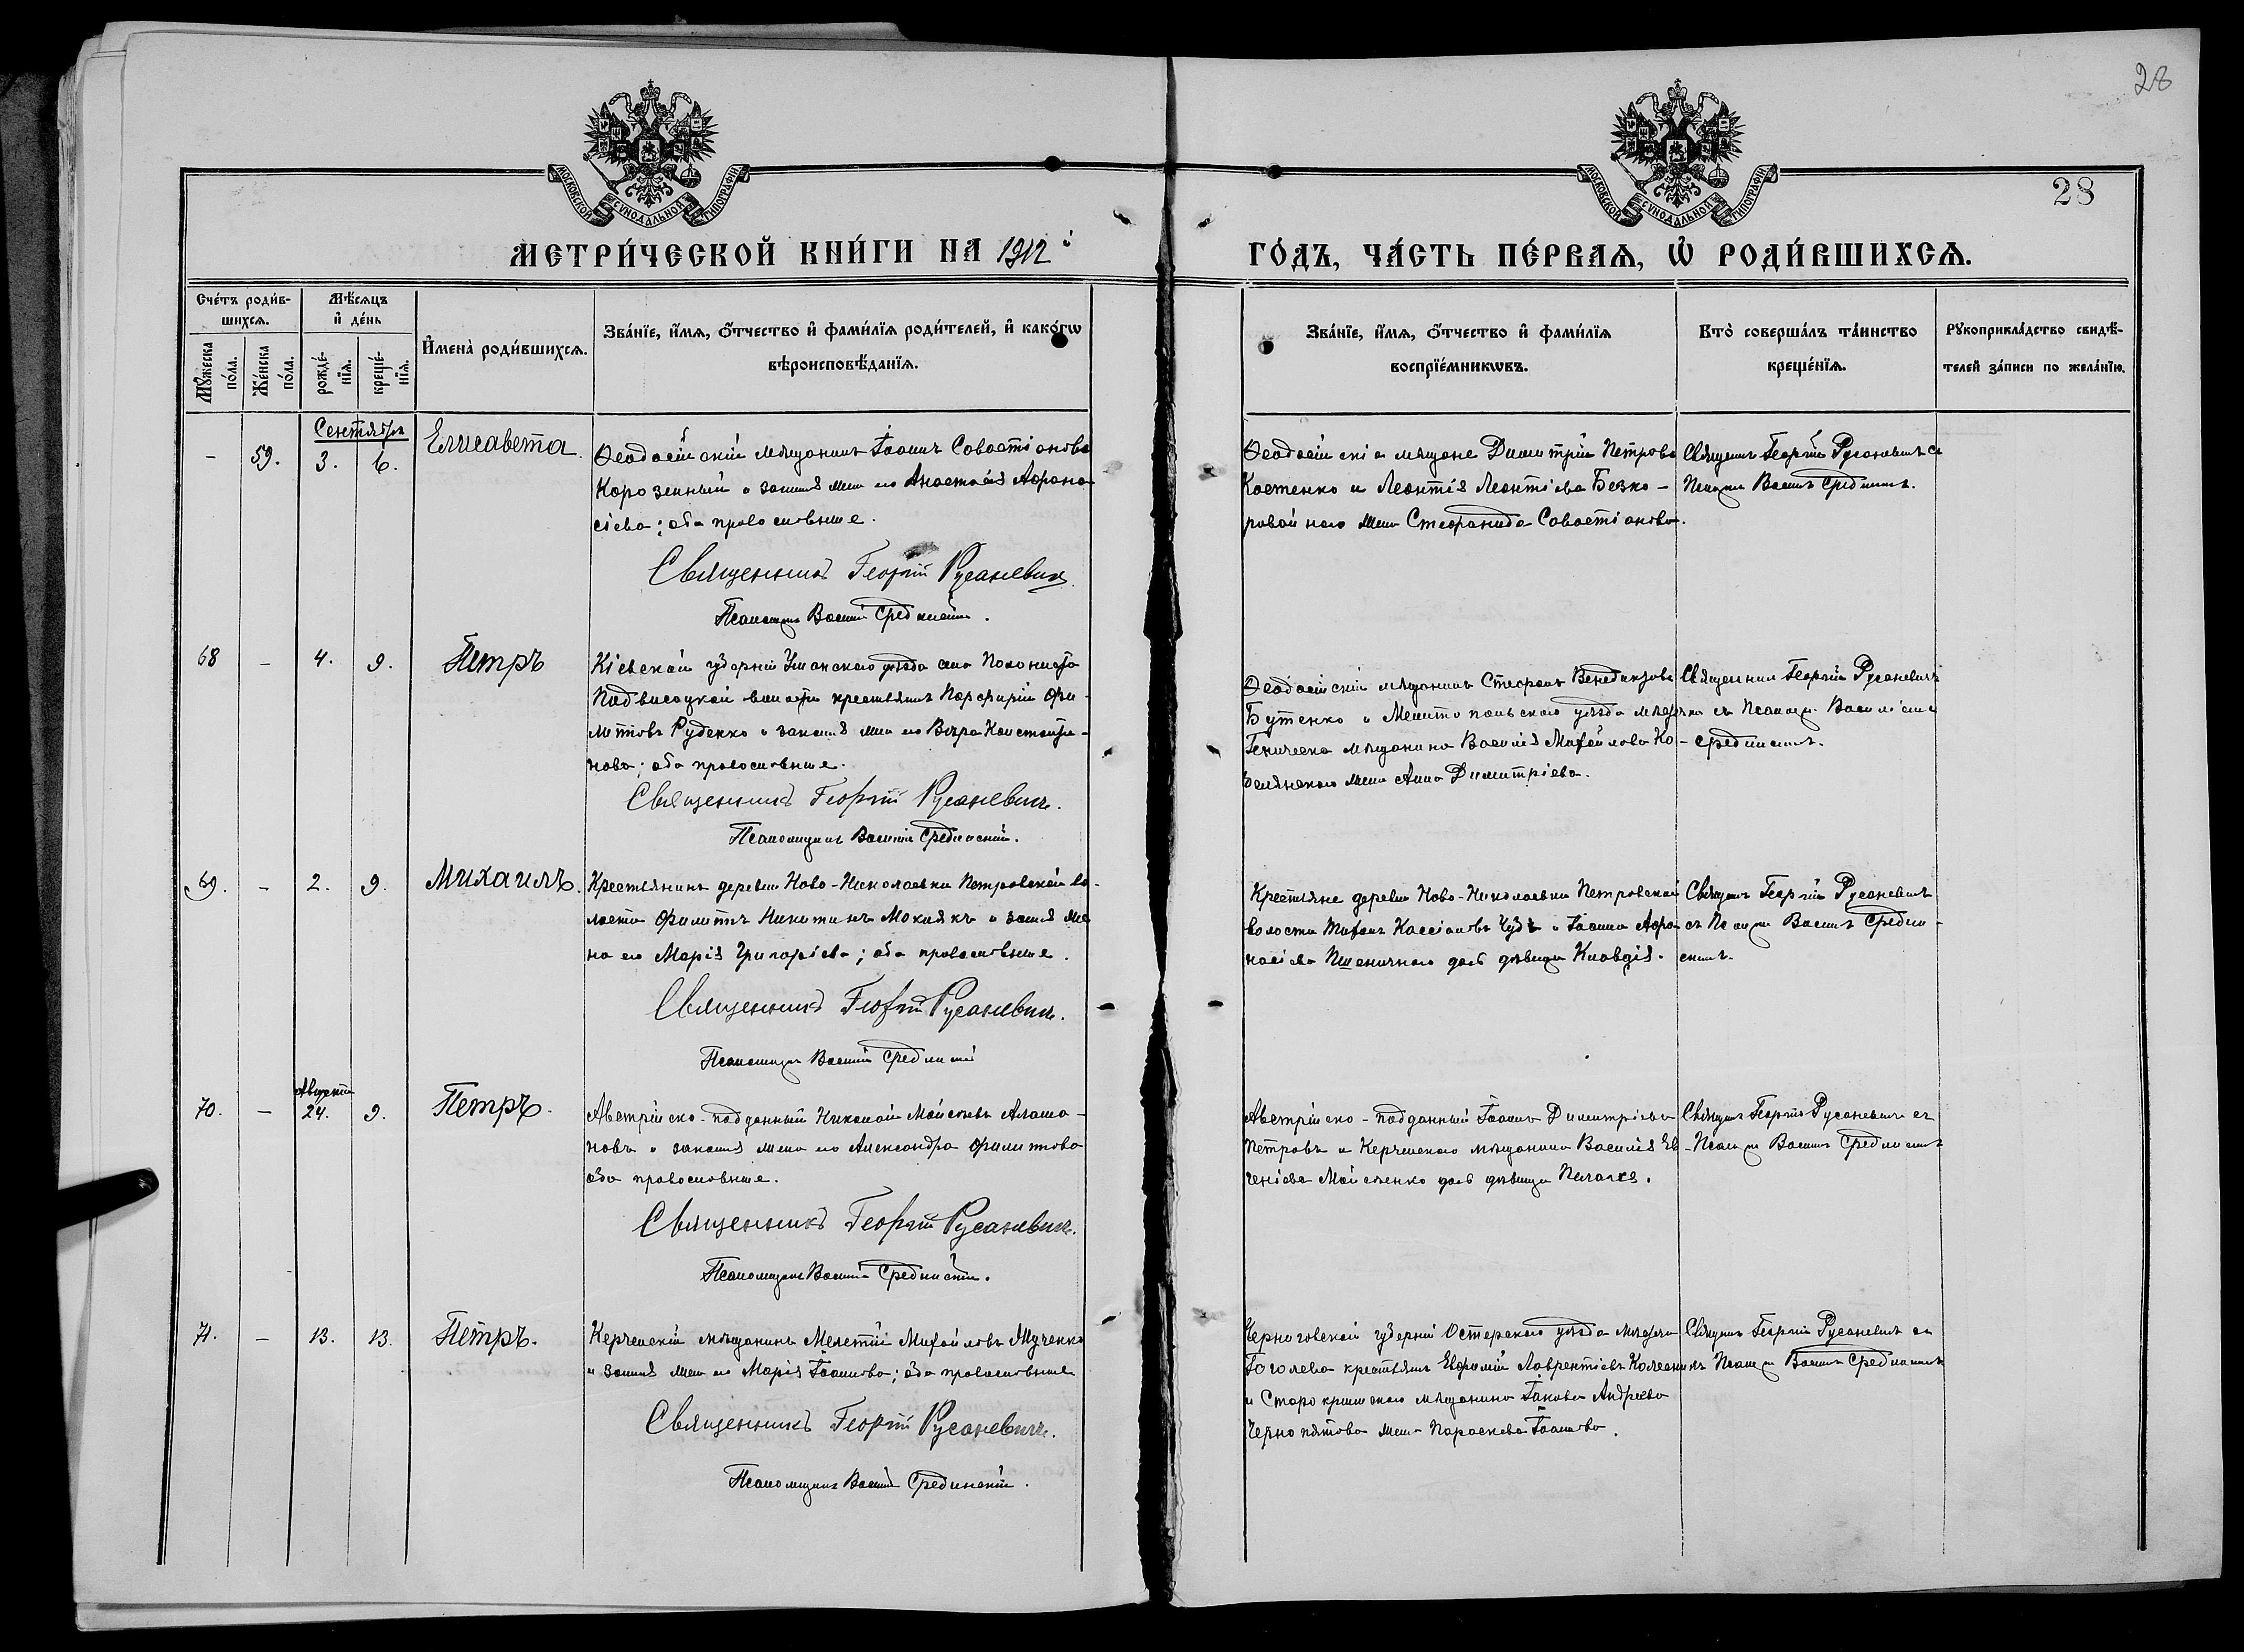 28
28
МОСКОВСКОЙ СѴНОДАЛЬНОЙ ТИПОГРАФІИ
МОСКОВСКОЙ СѴНОДАЛЬНОЙ ТИПОГРАФІИ
МЕТРИ́ЧЕСКОЙ КНИ́ГИ НА 1912 й
ГО́ДЪ, ЧА́СТЬ ПЕ́РВАѦ, Ѡ҆ РОДИ́ВШИХСѦ.
Сче́тъ роди́в-
шихсѧ.
Мꙋ́жеска
по́ла.
Же́нска
по́ла.
Мѣ́сѧцъ
и҆ де́нь
рожде́-
нїѧ.
креще́-
нїѧ.
И҆мена̀ роди́вшихсѧ.
Зва́нїе, и҆́мѧ, ѻ҆́тчество и҆ фами́лїѧ роди́телей, и҆ како́гѡ
вѣроисповѣ́данїѧ.
Зва́нїе, и҆́мѧ, ѻ҆́тчество и҆ фами́лїѧ
воспрїе́мникѡвъ.
Кто̀ соверша́лъ та́инство
креще́нїѧ.
Рꙋкоприкла́дство свидѣ́-
телей за́писи по жела́нїю.
Сентябрь
- 59. 3. 6. Елисавета.
Ѳеодосійскій мѣщанинъ Іоаннъ Савастіановъ
Корозенный и законная жена его Анастасія Афана-
сіева; оба православные.
Священникъ Георгій Русаневичъ
Псаломщикъ Василій Срединскій.
Ѳеодосійскіе мѣщане Димитрій Петровъ
Костенко и Леонтія Леонтіева Безко-
ровайнаго жена Стефанида Савастіанова.
Священникъ Георгій Русаневичъ съ
Псаломщ. Василіемъ Срединскимъ.
68 - 4. 9. Петръ
Кіевской губерніи Уманскаго уѣзда села Полонистаго
Подвысоцкой волости крестьянинъ Порфирій Фи-
липповъ Руденко и законная жена его Вѣра Константи-
нова; оба православные.
Священникъ Георгій Русаневичъ.
Псаломщикъ Василій Срединскій.
Ѳеодосійскій мѣщанинъ Стефанъ Венедиктовъ
Бутенко и Мелитопольскаго уѣзда мѣстечка
Геническа мѣщанина Василія Михайлова Ко-
белянскаго жена Анна Димитріева.
Священникъ Георгій Русаневичъ
съ Псаломщ. Василіемъ
Срединскимъ.
69. - 2. 9. Михаилъ.
Крестьянинъ деревни Ново-Николаевки Петровской во-
лости Филиппъ Никитинъ Мокіякъ и законная же-
на его Марія Григоріева; оба православные.
Священникъ Георгій Русаневичъ.
Псаломщикъ Василій Срединскій
Крестьяне деревни Ново-Николаевки Петровской
волости Тихонъ Кассіановъ Чудъ и Іоанна Афа-
насіева Пшеничнаго дочь дѣвица Клавдія.
Священникъ Георгій Русаневичъ
съ Псаломщ. Василіемъ Средин-
скимъ.
Августъ
70. - 24. 9. Петръ.
Австрійско-подданный Николай Моисеевъ
новъ и законная жена его Александра Филиппова
оба православные.
Священникъ Георгій Русаневичъ.
Псаломщикъ Василій Срединскій.
Австрійско-подданный Іоаннъ Димитріевъ
Петровъ и Керченскаго мѣщанина Василія Ев-
геніева Мойсеенко дочь дѣвица Пелагія.
Священникъ Георгій Русаневичъ съ
Псаломщ. Василіемъ Срединскимъ
71. - 13. 13. Петръ.
Керченскій мѣщанинъ Мелетій Михайловъ Мученко
и законная жена его Марія Іоаннова; оба православные
Священникъ Георгій Русаневичъ.
Псаломщикъ Василій Срединскій.
Черниговской губерніи Остерскаго уѣзда мѣстечка
Гоголева крестьянинъ Евфимій Лаврентіевъ
и Старокрымскаго мѣщанина Іакова Андреева
Чернопятова жена Параскева Іоаннова.
Священникъ Георгій Русаневичъ съ
Псаломщ. Василіемъ Срединскимъ